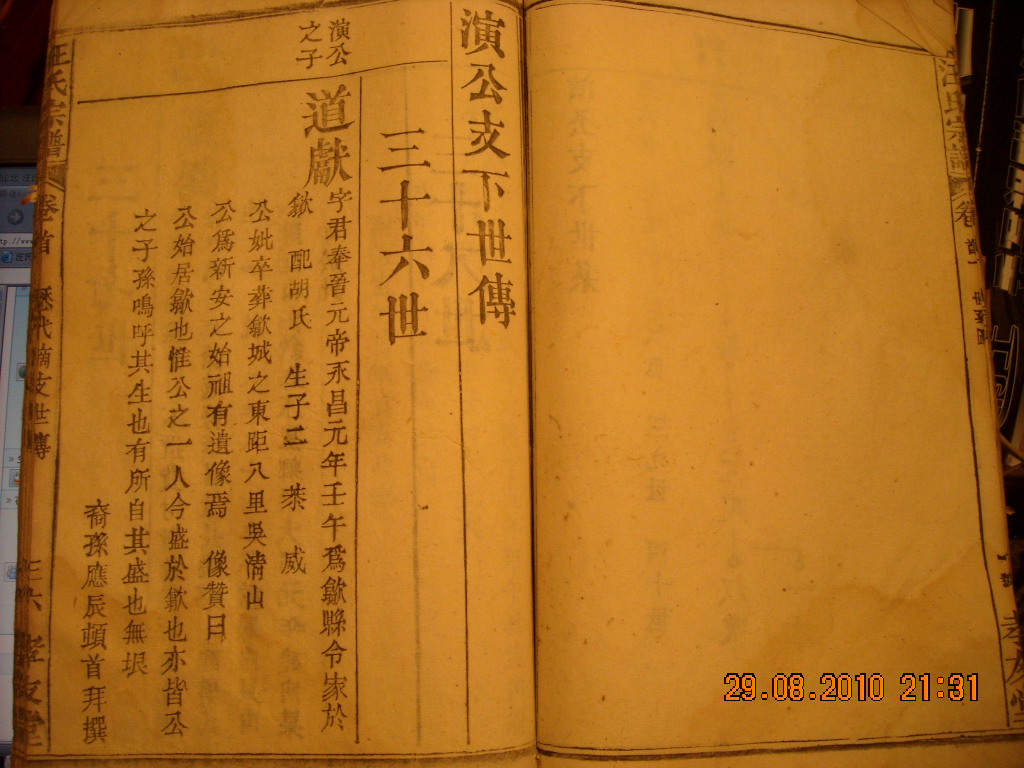 汪氏宗譜
孝友堂
演公支下世傳
三十六世
演公
之子
道獻
字君奉晉元帝永昌元年壬午爲歙縣令家於
歙 配胡氏 生子二 棻 威
公妣卒葬歙城之東距八里吳清山
公爲新安之始祖有遺像焉 像贊曰
公始居歙也惟公之一人今盛於歙也亦皆公
之子孫嗚呼其生也有所自其盛也無垠
裔孫應辰頓首拜撰
汪氏宗譜
卷首
歷代
支世傳
三六
孝友堂
29.08.2010 21:31